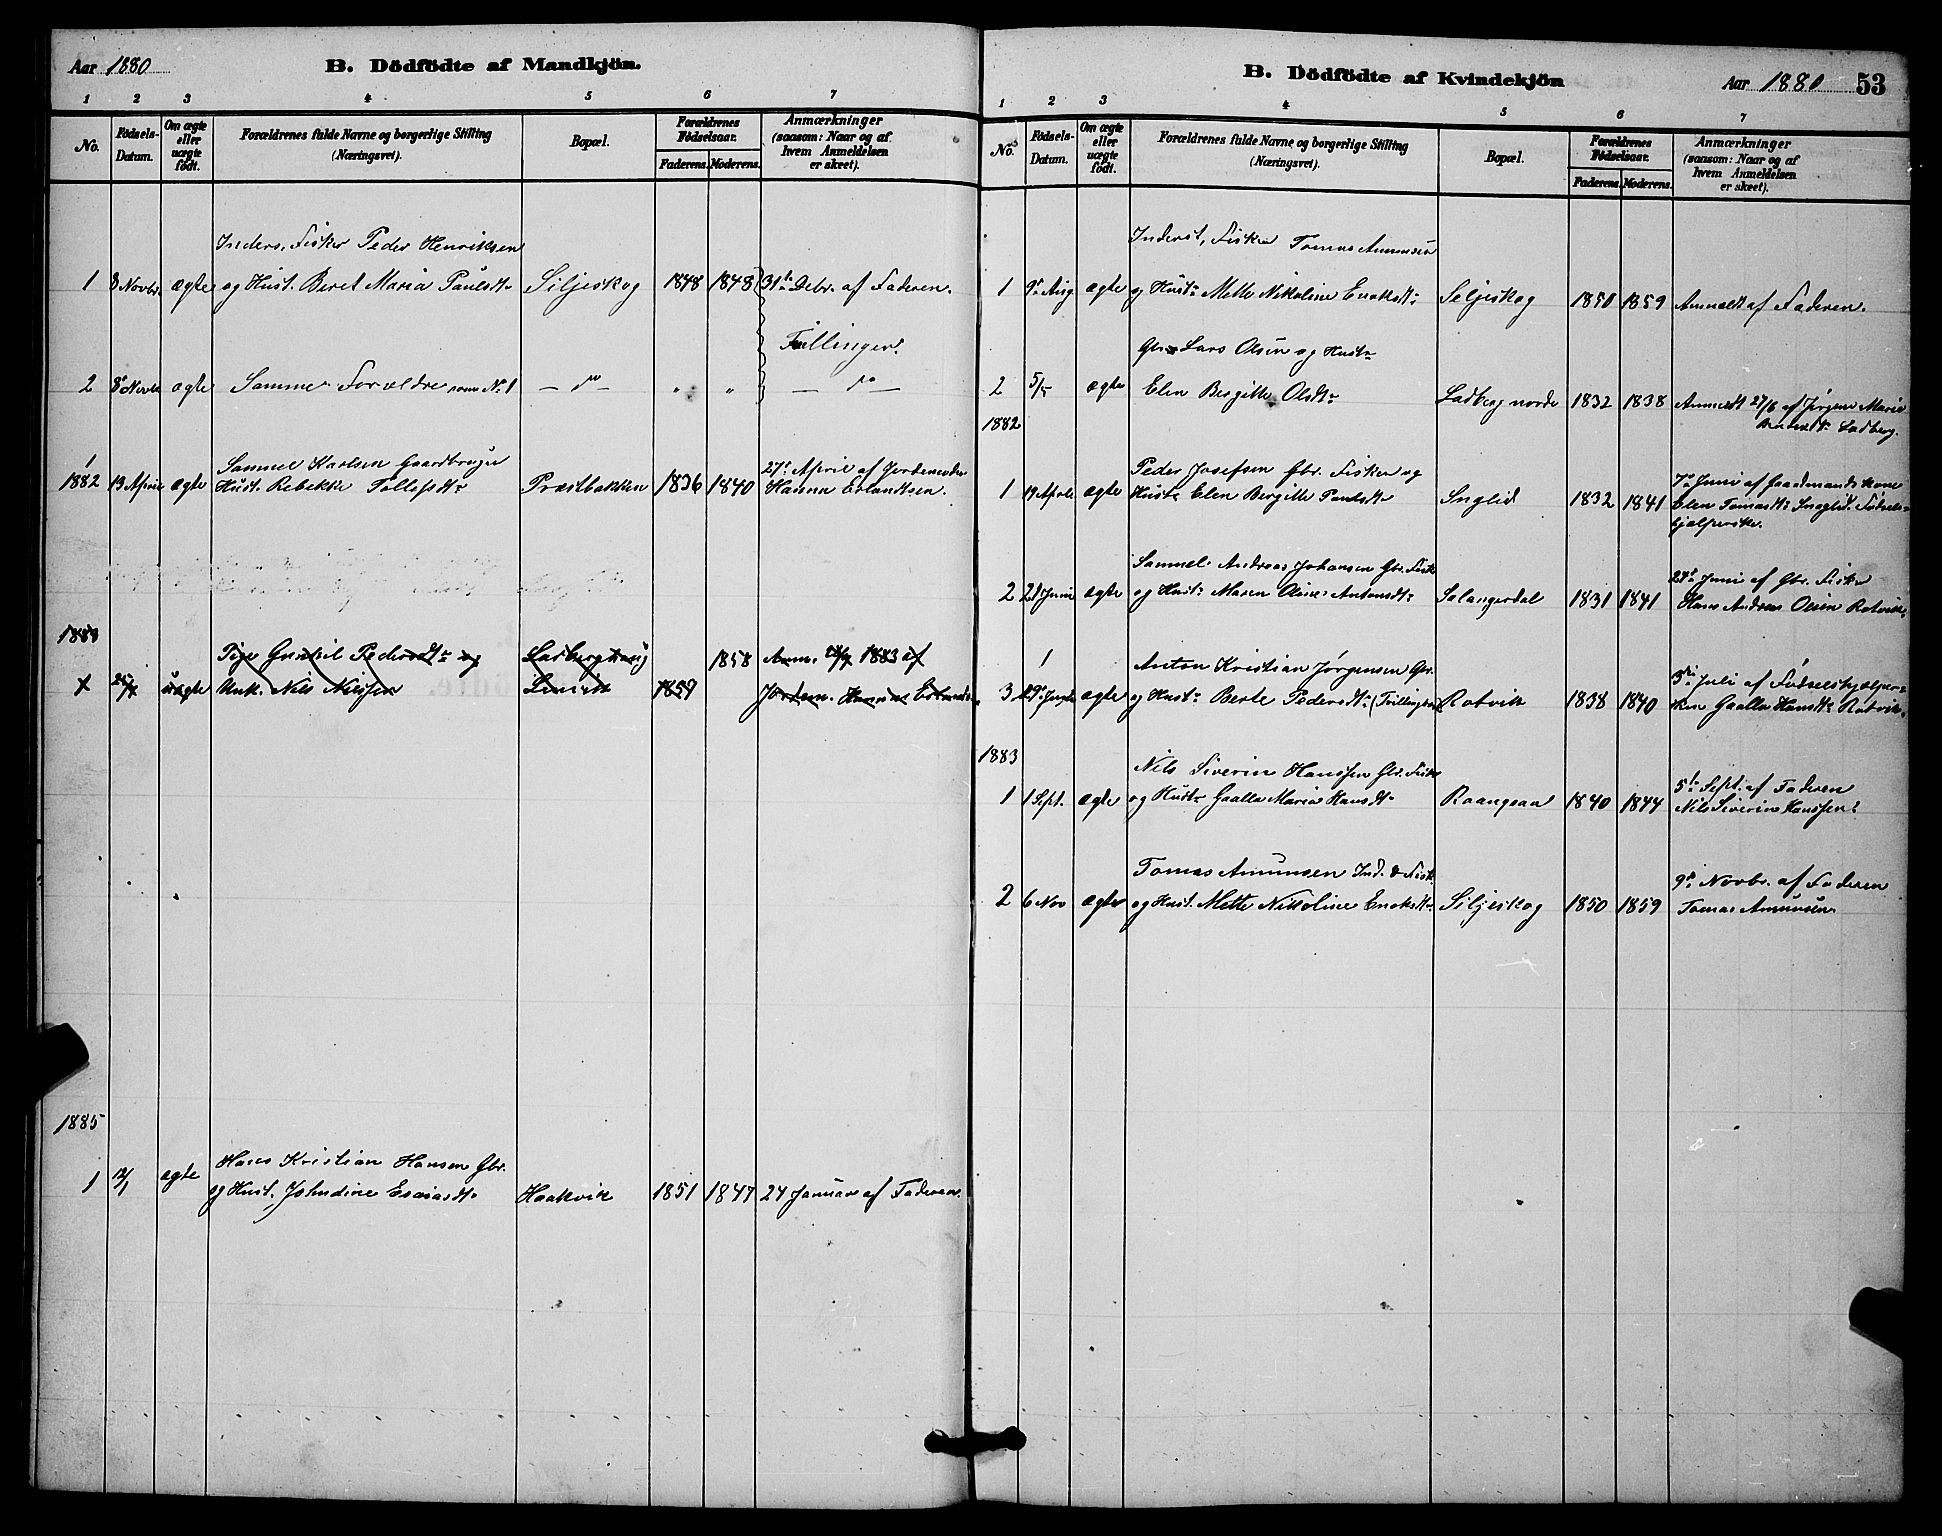 Aar 1880
B. Dödfödte af Mandkjön.
1 2 3 4 5 6 7
No.
Födsels-Datum.
Om ægte eller uægte födt.
Forældrenes fulde Navne og borgerlige Stilling (Næringsvei).
Bopæl.
Forældrenes Födselsaar.
Faderens. Moderens.
Anmærkninger (saasom: Naar og af hvem Anmeldelsen er skeet).
Inders, Fisker Peder Henriksen
1 8 Novbr. ægte og Hust. Beret Maria Paulsdtr Siljeskog 1848 1848 31te Debr. af Faderen.
Tvillinger.
2 8de Novbr ægte Samme Forældre som No 1 — do — " " — do —
1882
1 Samuel Karlsen Gaardbruger 27de April af Jordemoder
13 April ægte Hust. Rebekke Tollefsdtr Præstbakken 1836 1840 Hanna Erlandtsen.
1883
Pige Gunhil Pedersdtr og Ladberghaug 1858 Anm. 1883 af
uægte Unk. Nils Nilssen 1859 Jordem. Hanna Erlandtsen
1885
Hans Kristian Hansen Gbr.
1 12/1 ægte og Hust. Johndine Esaiasdtr Haakvik 1851 1847 24 Januar af Faderen.
B. Dödfödte af Kvindekjön
Aar 1880 53
1 2 3 4 5 6 7
No.
Födsels-Datum.
Om ægte eller uægte födt.
Forældrenes fulde Navne og borgerlige Stilling (Næringsvei).
Bopæl.
Forældrenes Födselsaar.
Faderens. Moderens.
Anmærkninger (saasom: Naar og af hvem Anmeldelsen er skeet).
Inderst, Fisker Tomas Amunsen
1 9de Aug ægte og Hustr Mette Nikoline Enoksdtr Seljeskog 1850 1859 Anmeldt af Faderen.
Gbr Lars Olsen og Hustr
2 5/5 ægte Elen Bergitte Olsdtr Ladberg nordre 1832 1838 Anmeldt 27/6 af Jørgine Marie
Ladberg.
1882
Peder Josefsen Gbr. Fisker og 7de Juni af Gaardmandskone
1 19 April ægte Hustr Elen Bergitte Paulsdtr Snglid 1832 1841 Elen Tomasdtr Snglid. Fødsels-
hjælperske.
Samuel Andreas Johansen Gbr. Fisk 24de Juni af Gbr. Fisker
2 21 Juni ægte og Hustr Maren Oline Antonsdtr Salangerdal 1831 1841 Hans Andreas Olsen Rotvik.
1 Anton Kristian Jørgensen Gbr. 3die Juli af Fødselshjælper-
3 29de Juni ægte og Hustr Berte Pedersdtr (Tvillinger) Rotvik 1838 1840 sken Gaalla Hansdtr Rotvik.
1883
Nils Siverin Hanssen Gbr. Fisk 5te Sept. af Faderen
1 1 Sept. ægte og Hustr Gaalla Maria Hansdtr Raangsaa 1840 1844 Nils Siverin Hanssen
Tomas Amunsen Ind. & Fisk. 9de Novbr. af Faderen
2 6 Nov ægte og Hust. Mette Nikkoline Enoksdtr Siljeskog 1850 1859 Tomas Amunsen